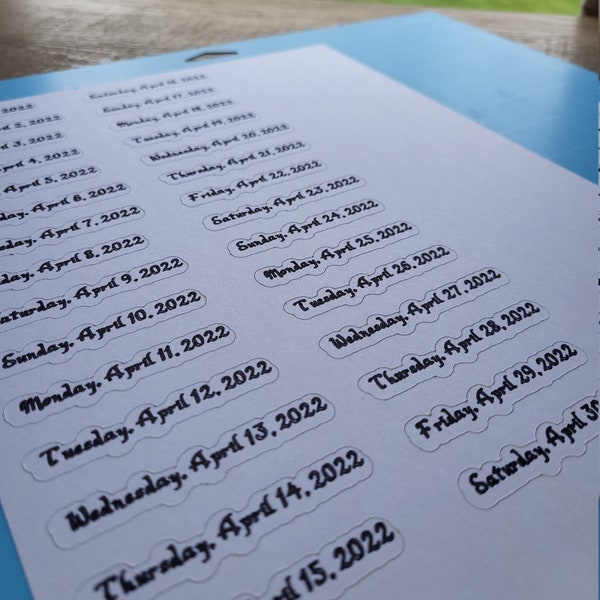 2022
2, 2022
3, 2022
4, 2022
April 5, 2022
day, April 6, 2022
day, April 7, 2022
day, April 8, 2022
aturday, April 9, 2022
Sunday, April 10, 2022
Monday, April 11, 2022
Tuesday, April 12, 2022
Wednesday, April 13, 2022
Thursday, April 14, 2022
15, 2022
Saturday, April 16, 2022
Sunday, April 17, 2022
Monday, April 18, 2022
Tuesday, April 19, 2022
Wednesday, April 20, 2022
Thursday, April 21, 2022
Friday, April 22, 2022
Saturday, April 23, 2022
Sunday, April 24, 2022
Monday, April 25, 2022
Tuesday, April 26, 2022
Wednesday, April 27, 2022
Thursday, April 28, 2022
Friday, April 29, 2022
Saturday, April 30